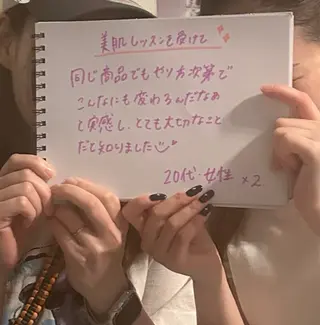 美肌レッスンを受けて
同じ商品でもやり方次第で
こんなにも変わるんだなぁ
と実感し、とても大切なこと
だと知りました
20代・女性 ×2